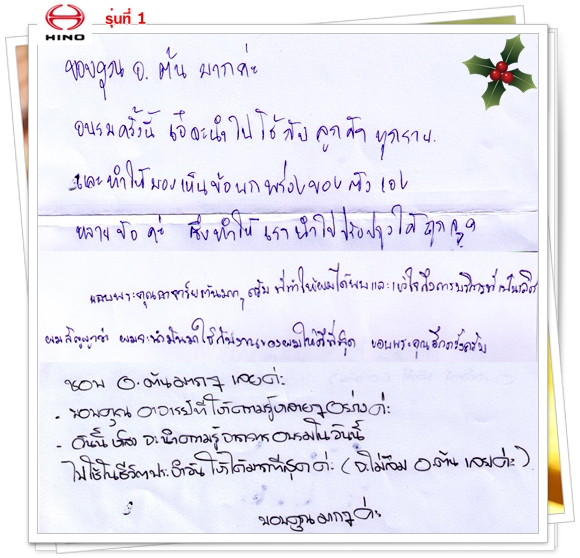 HINO
รุ่นที่ 1
ขอบคุณ อ. ต้น มากค่ะ
อบรมครั้งนี้ จะนำไปใช้กับ ลูกค้า ทุกราย.
และทำให้มองเห็นข้อบกพร่องของตัวเอง
หลายข้อ ค่ะ ซึ่งทำให้ เรานำไปปรับปรุงให้ถูก
ขอบพระคุณอาจารย์ต้นมากๆครับ ที่ทำให้ผมได้พบและเข้าใจถึงการบริการที่เป็นเลิศ
ผมสัญญาว่า ผมจะนำมันมาใช้กับงานของผมให้ดีที่สุด ขอบพระคุณอีกครั้งครับ
ชอบ อ. ต้นมากๆ เลยค่ะ
- ขอบคุณ อาจารย์ที่ให้ความรู้หลายๆอย่างค่ะ
- วันนี้ จะนำความรู้จากการอบรมในวันนี้
ไปใช้ในชีวิตประจำวัน ให้ได้มากที่สุด ค่ะ (จะไม่ลืม อ.ต้น เลยค่ะ)
ขอบคุณมากๆค่ะ